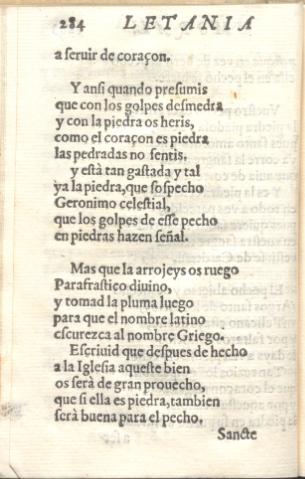 284 LETANIA
a seruir de coraçon.
Y ansi quando presumis
que con los golpes desmedra
y con la piedra os heris,
como el coraçon es piedra
las pedradas no sentis.
y està tan gastada y tal
ya la piedra, que sospecho
Geronimo celestial,
que los golpes de esse pecho
en piedras hazen señal.
Mas que la arrojeys os ruego
Parafrastico diuino,
y tomad la pluma luego
para que el nombre latino
escurezca al nombre Griego.
Escriuid que despues de hecho
a la Iglesia aqueste bien
os serà de gran prouecho,
que si ella es piedra, tambien
serà buena para el pecho.
Sancte